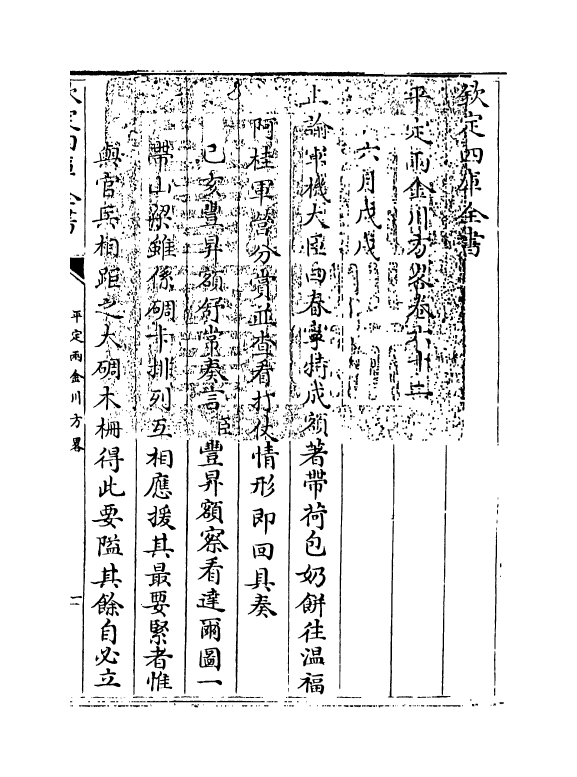 欽定四庫全書
平定兩金川方畧卷六十二
六月戊戌
上諭軍機大臣曰春寧特成額著帶荷包奶餅往温福
阿桂軍營分賞並查看打仗情形即回具奏
己亥豐昇額舒常奏言臣豐昇額察看達爾圖一
帶山梁雖係碉卡排列互相應援其最要緊者惟
與官兵相距之大碉木柵得此要隘其餘自必立
欽定四庫全書
平定兩金川方畧
一